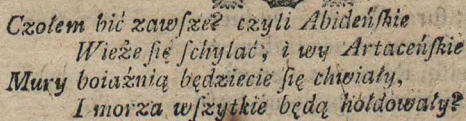 Czołem bić zawſze? czyli Abideńſkie
Wieże ſię ſchylać, i wy Artaceńſkie
Mury boiaźnią będziecie ſię chwiały,
I morza wſzytkie będą hołdowały?